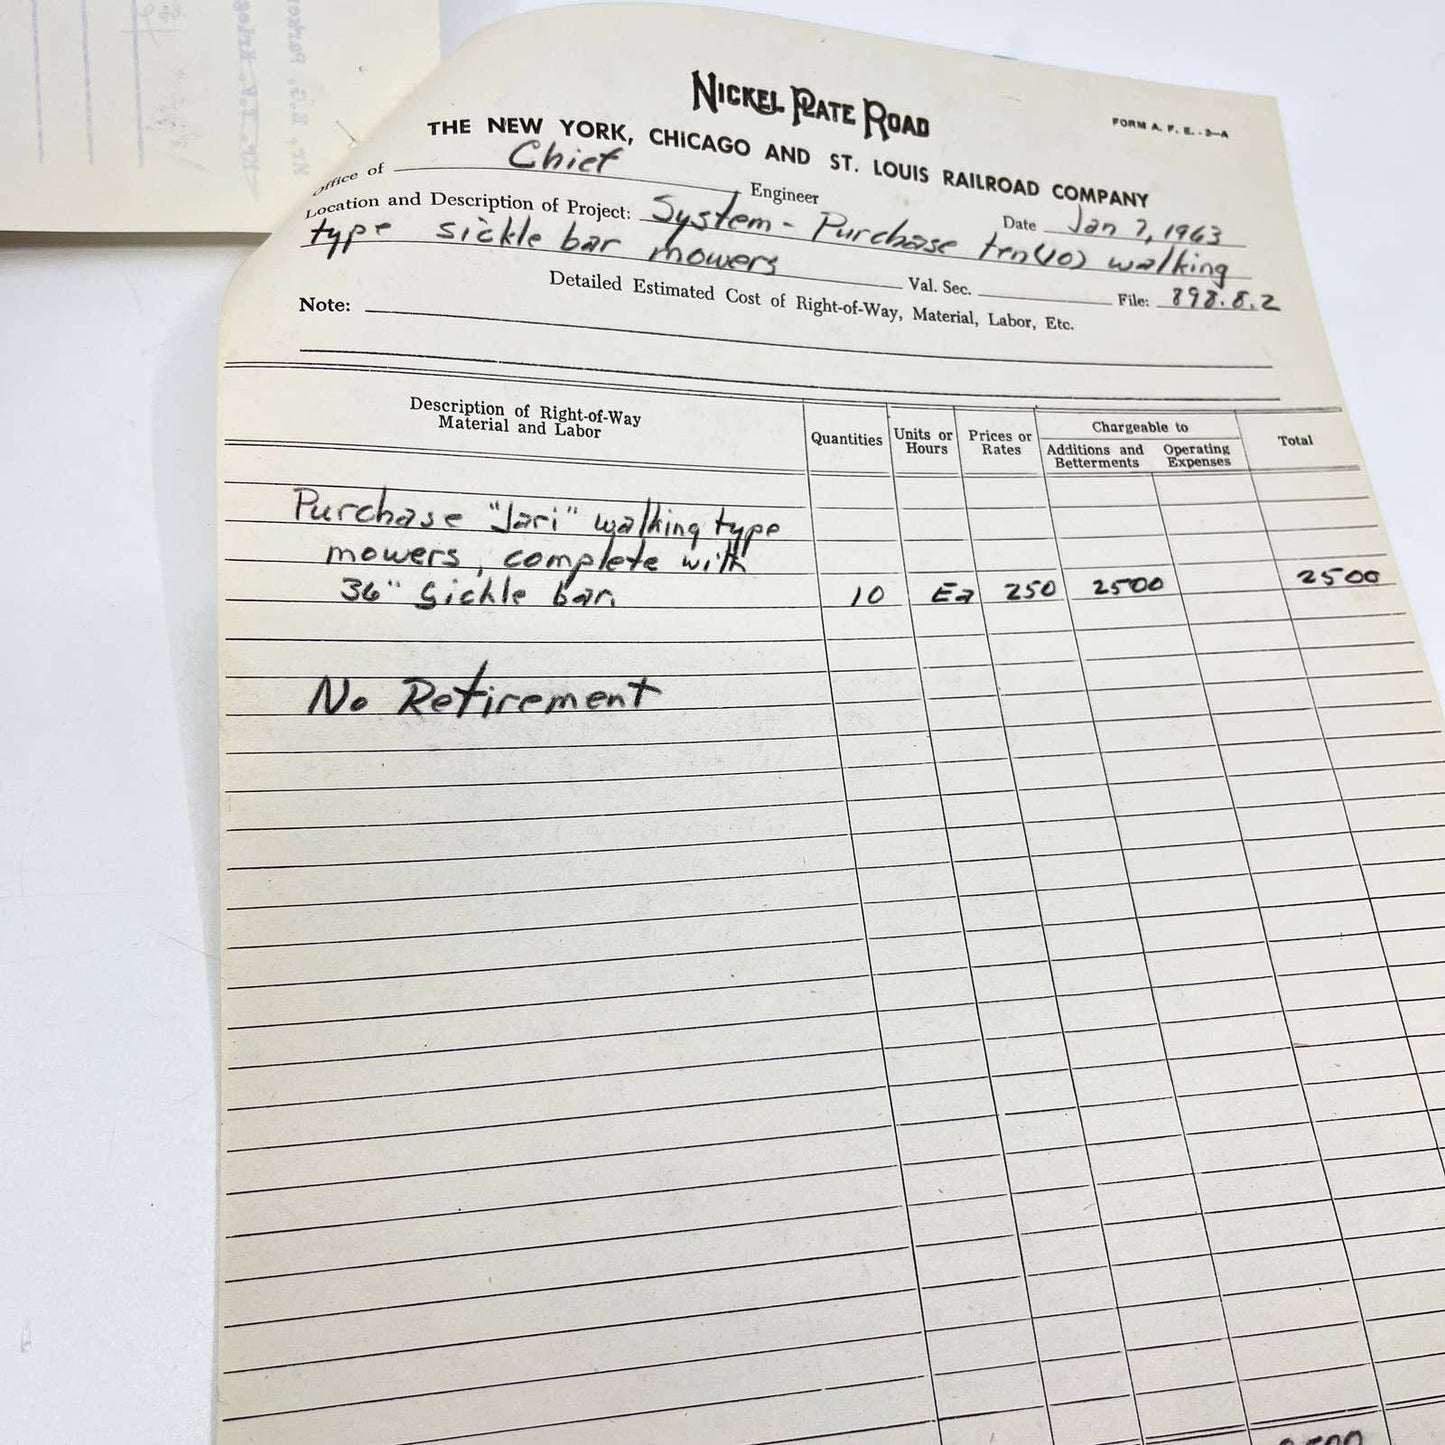 NICKEL PLATE ROAD
FORM A. F. E. - 3-A
THE NEW YORK, CHICAGO AND ST. LOUIS RAILROAD COMPANY
Office of Chief Engineer
Date Jan 7, 1963
Location and Description of Project: System - Purchase ten (10) walking
type sickle bar mowers
Val. Sec. File: 898.8.2
Detailed Estimated Cost of Right-of-Way, Material, Labor, Etc.
Note:
Description of Right-of-Way
Material and Labor
Quantities
Units or
Hours
Prices or
Rates
Chargeable to
Additions and
Betterments
Operating
Expenses
Total
Purchase "Jari" walking type
mowers, complete with
36" Sickle bar. 10 Ea 250 2500 2500
No Retirement